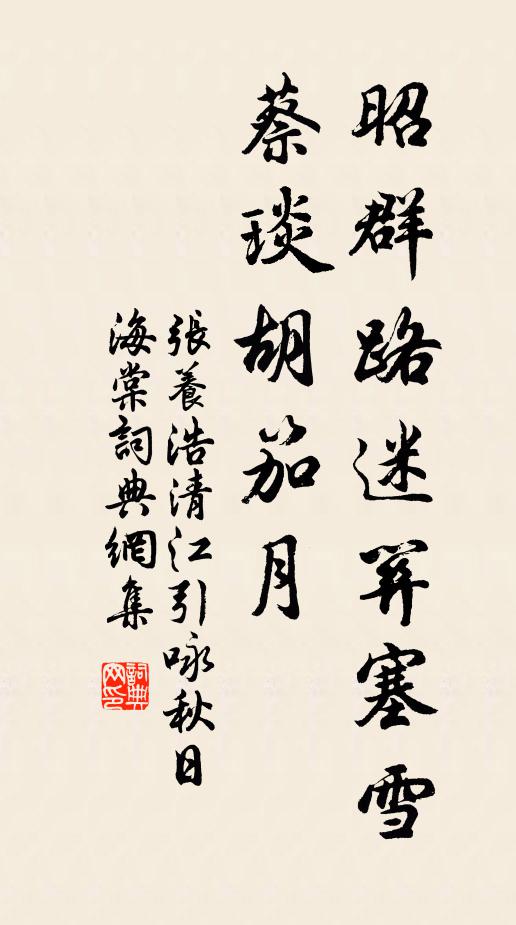 昭群路迷關塞雪
蔡琰胡笳月
張養浩清江引咏秋日
海棠詞典網集
詞典
网印